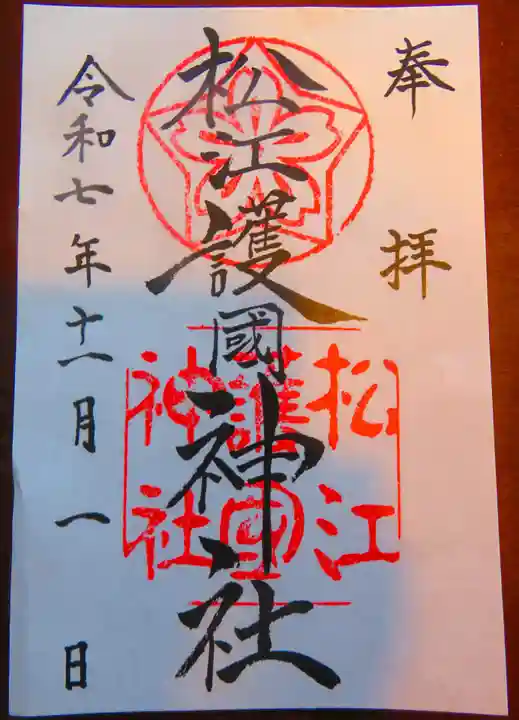 奉拝
松江護國神社
松江
護國
神社
令和七年十一月一日